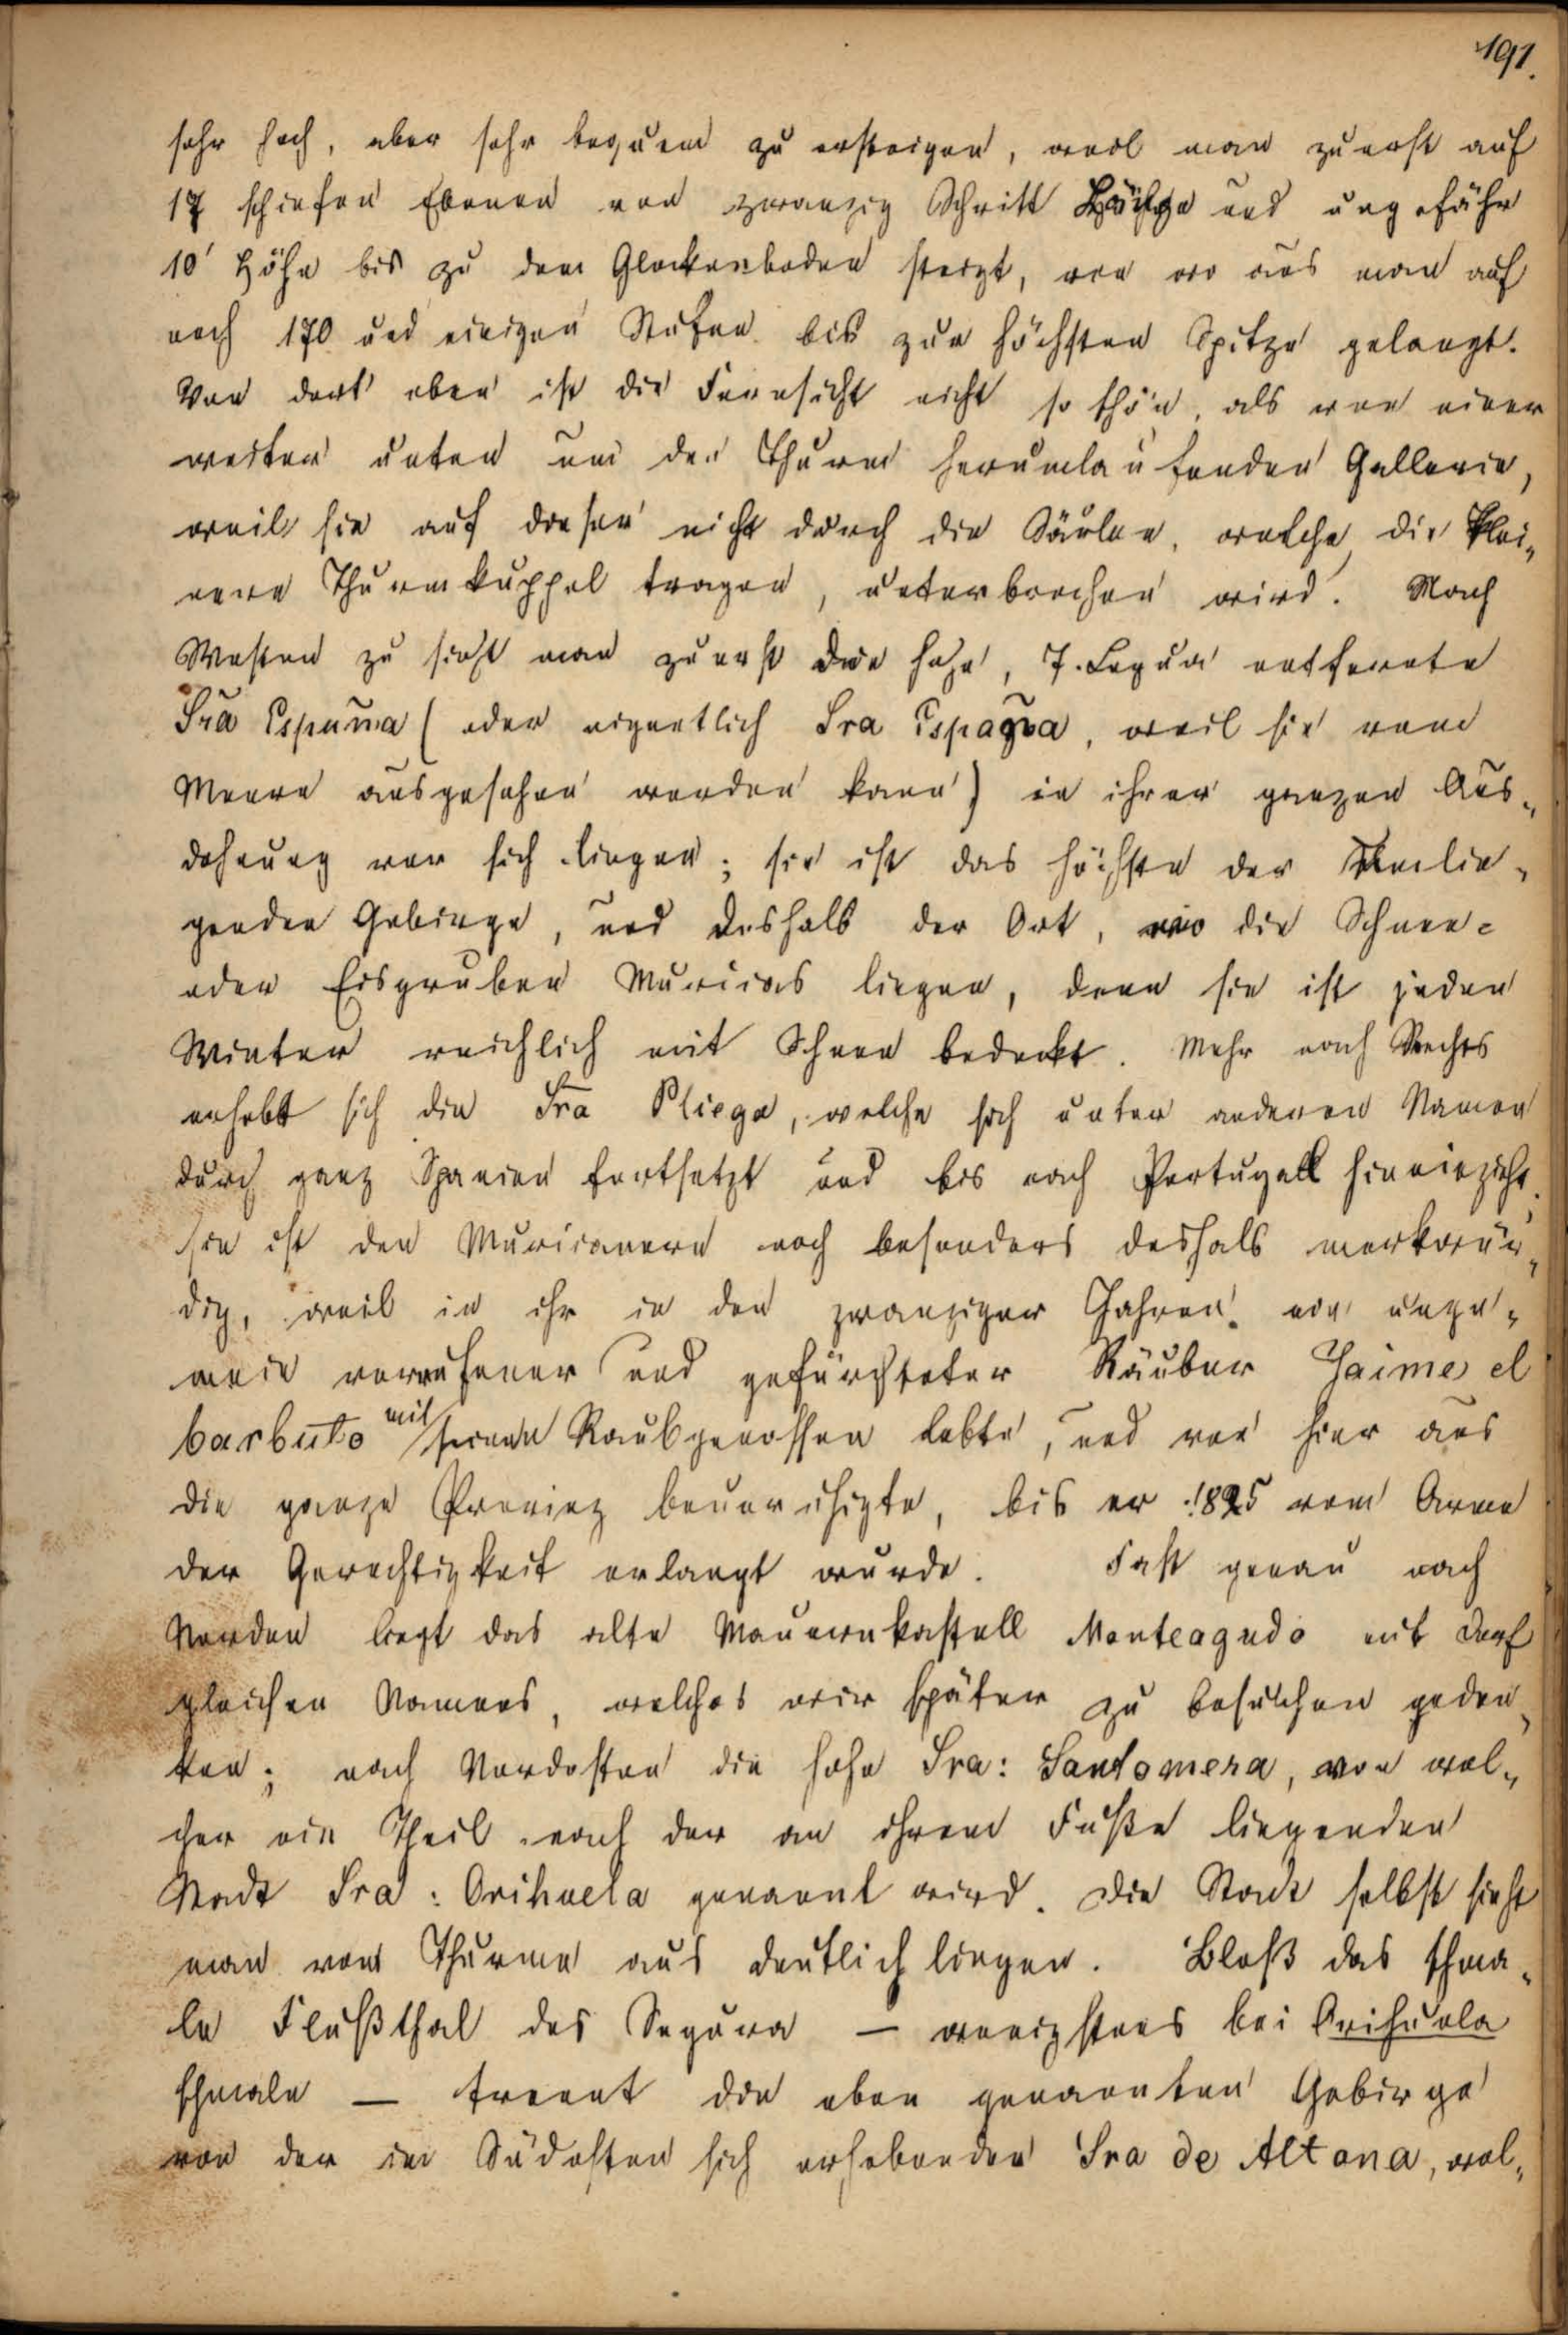 191.
sehr hoch, aber sehr bequem zu ersteigen, weil man zuerst auf
17 schiefen Ebenen von zwanzig Schritt Länge und ungefähr
10' Höhe bis zu dem Glockenboden steigt, von wo aus man auf
noch 170 und einigen Stufen bis zur höchsten Spitze gelangt.
Von dort oben ist die Fernsicht nicht so schön, als von einer
weiter unten um den Thurm herumlaufenden Gallerie,
weil sie auf dieser nicht durch die Säulen, welche die klei-
nere Thurmkuppel tragen, unterbrochen wird. Nach
Westen zu sieht man zuerst die hohe, 7. Legua entfernte
Sra Espuma (oder eigentlich Sra Espagna, weil sie vom
Meere aus gesehen werden kann) in ihrer ganzen Aus-
dehnung vor sich liegen; sie ist das höchste der umlie-
genden Gebirge, und deshalb der Ort, wo die Schnee-
oder Eisgruben Murcias liegen, denn sie ist jeden
Winter reichlich mit Schnee bedeckt. Mehr nach Rechts
erhebt sich die Sra Pliego, welche sich unter anderen Namen
durch ganz Spanien fortsetzt und bis nach Portugall hineinzieht,
sie ist den Murcianern noch besonders deshalb merkwür-
dig, weil in ihr in den zwanziger Jahren ein unge-
mein verrufener und gefürchteter Räuber Jaime el
barbuto mit seinen Raubgenossen lebte, und von hier aus
die ganze Provinz beunruhigte, bis er 1825 vom Arme
der Gerechtigkeit erlangt wurde. Fast genau nach
Norden liegt das alte Maurenkastell Monteagudo mit Dorf
gleichen Namens, welches wir später zu besuchen geden-
ken; nach Nordosten die hohe Sra: Santomera, von wel-
cher ein Theil nach der an ihrem Fuße liegenden
Stadt Sra: Orihuela genannt wird. Die Stadt selbst sieht
man vom Thurme aus deutlich liegen. Bloß das schma-
le Flußthal des Segura — wenigstens bei Orihuela
schmale — trennt die eben genannten Gebirge
von der im Südosten sich erhebenden Sra de Altona, wel-